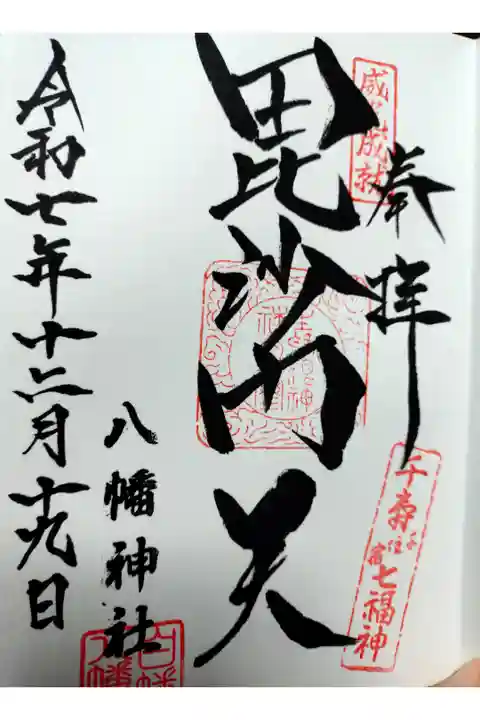 奉拝
千寿七福神
千住宿
毘沙門天
八幡神社
令和七年十二月十九日